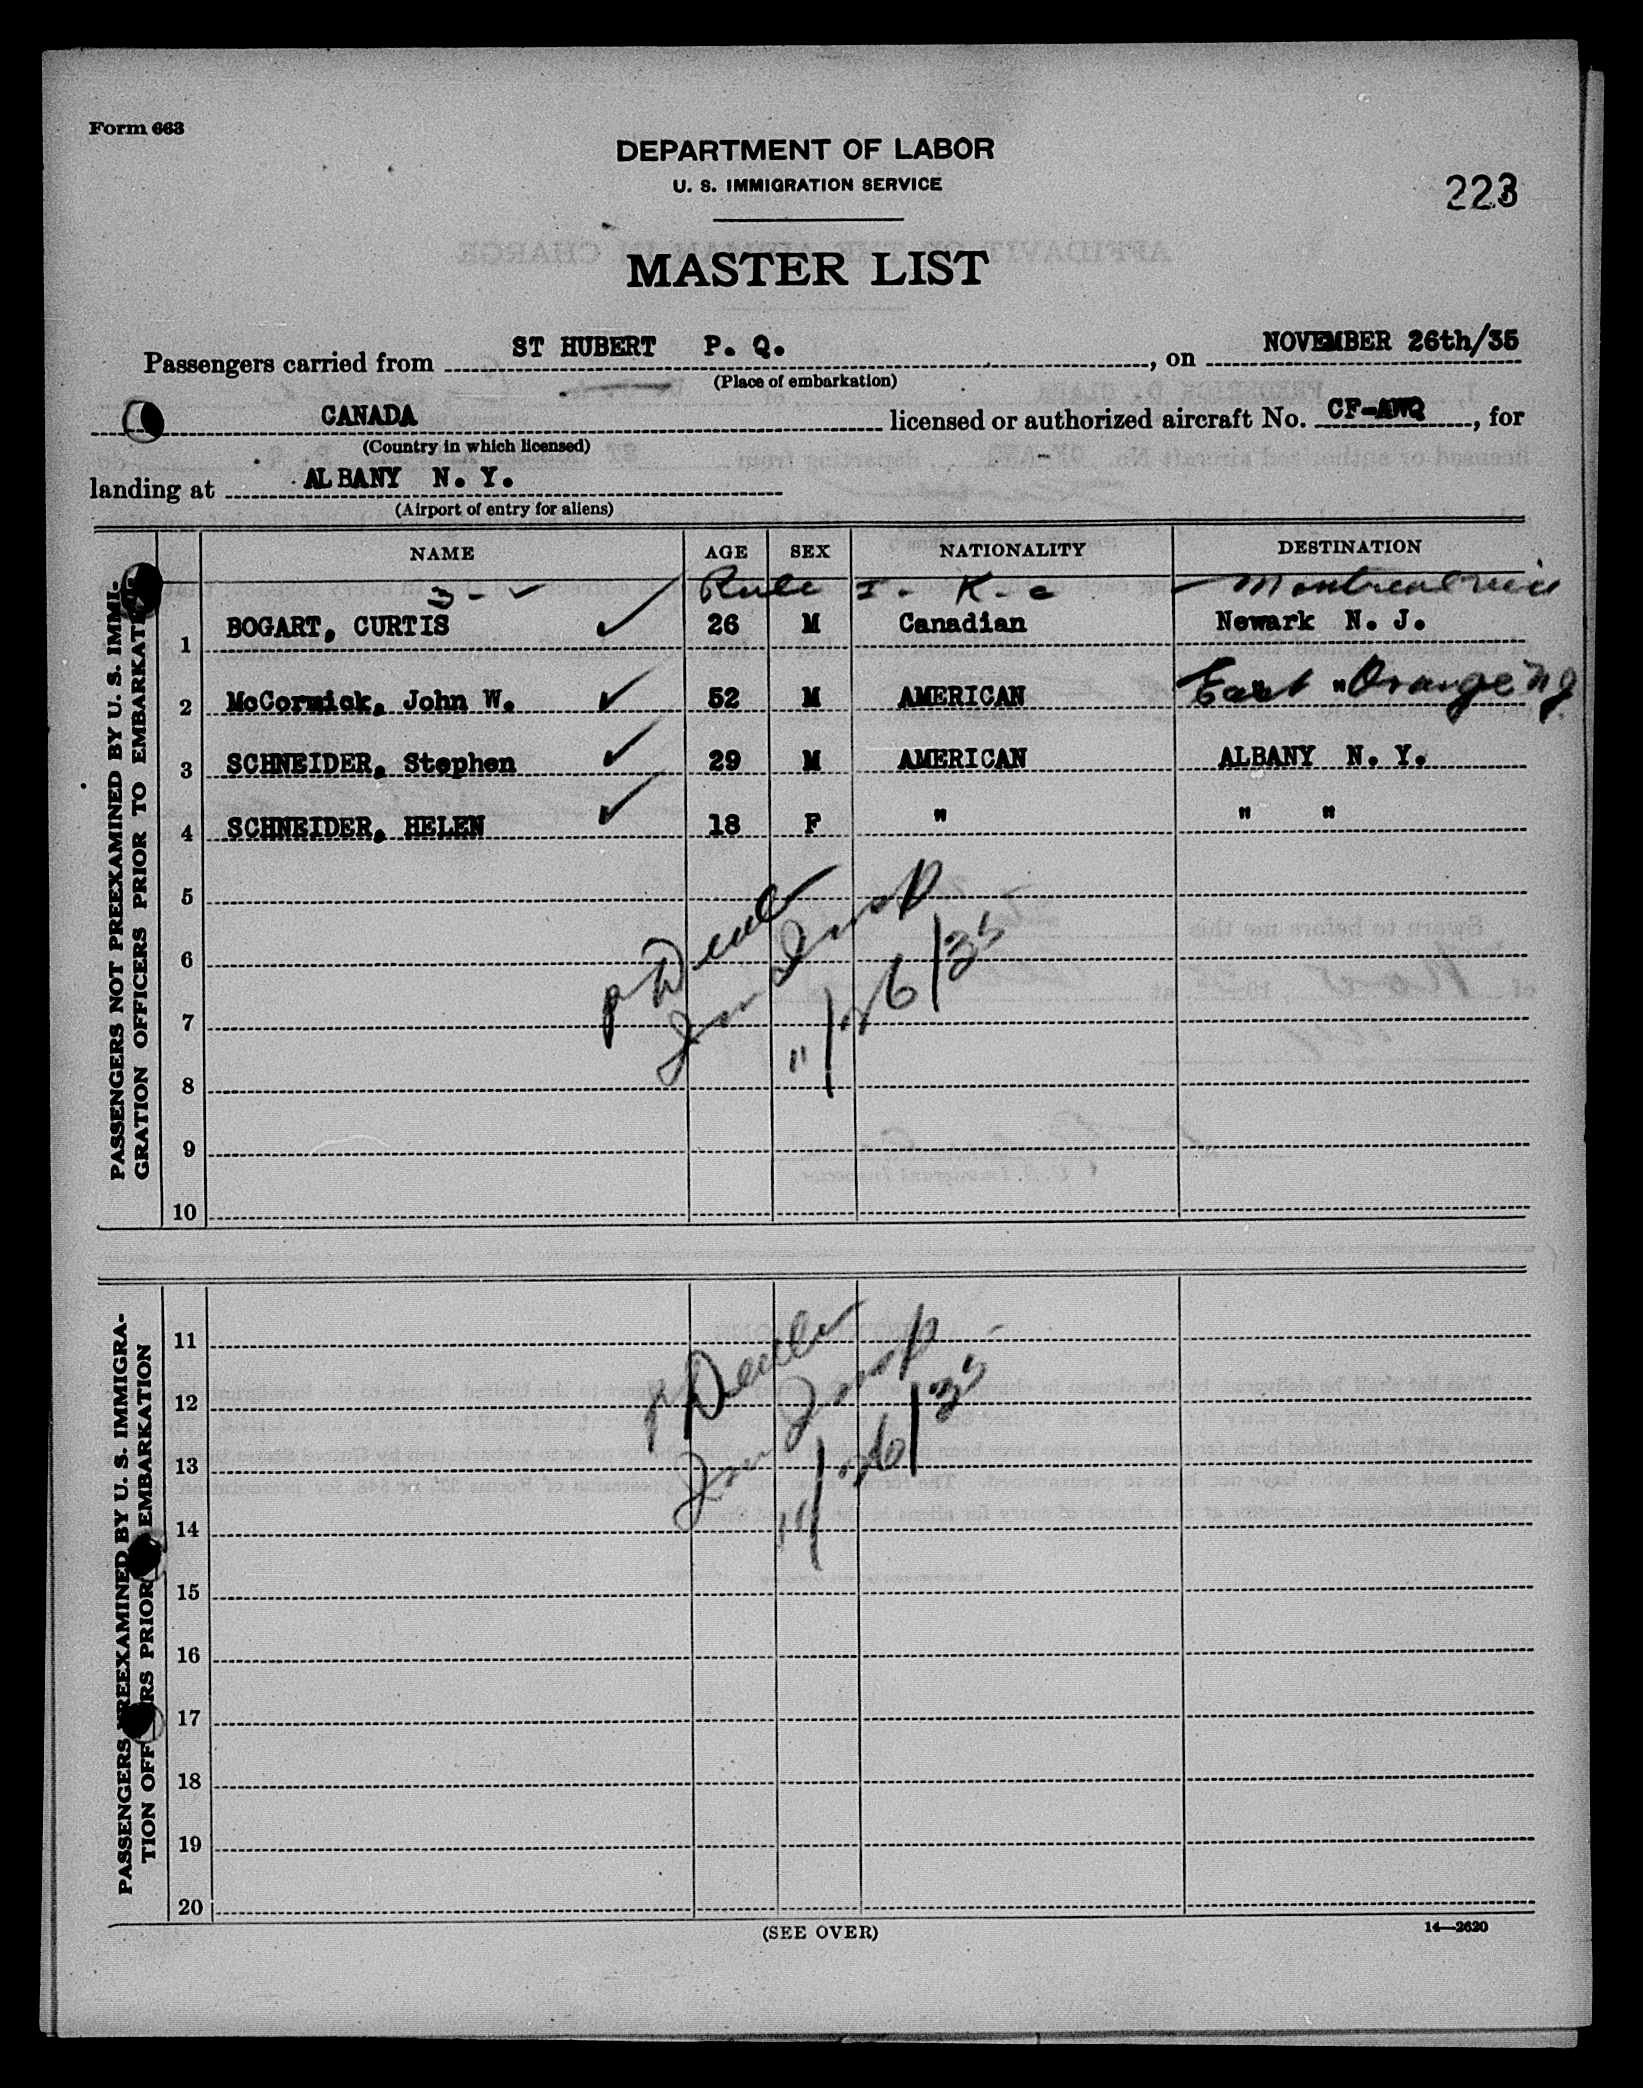 Form 663
DEPARTMENT OF LABOR
U. S. IMMIGRATION SERVICE
223
MASTER LIST
Passengers carried from ST HUBERT P. Q., on NOVEMBER 26th/35
(Place of embarkation)
CANADA licensed or authorized aircraft No. CF-AWQ, for
(Country in which licensed)
landing at ALBANY N. Y.
(Airport of entry for aliens)
NAME AGE SEX NATIONALITY DESTINATION
3 - ✓ Rule I - K - c - Montreal
1 BOGART, CURTIS ✓ 26 M Canadian Newark N. J.
2 McCormick, John W. ✓ 52 M AMERICAN East " Orange NJ
3 SCHNEIDER, Stephen ✓ 29 M AMERICAN ALBANY N. Y.
4 SCHNEIDER, HELEN ✓ 18 F " " "
5
6
7
8
9
10
Imm Insp
11/26/35
PASSENGERS NOT PREEXAMINED BY U. S. IMMI-
GRATION OFFICERS PRIOR TO EMBARKAT
11
12
13
14
15
16
17
18
19
20
Imm Insp
11/26/35
PASSENGERS PREEXAMINED BY U. S. IMMIGRA-
TION OFF RS PRIOR EMBARKATION
(SEE OVER)
14—2620